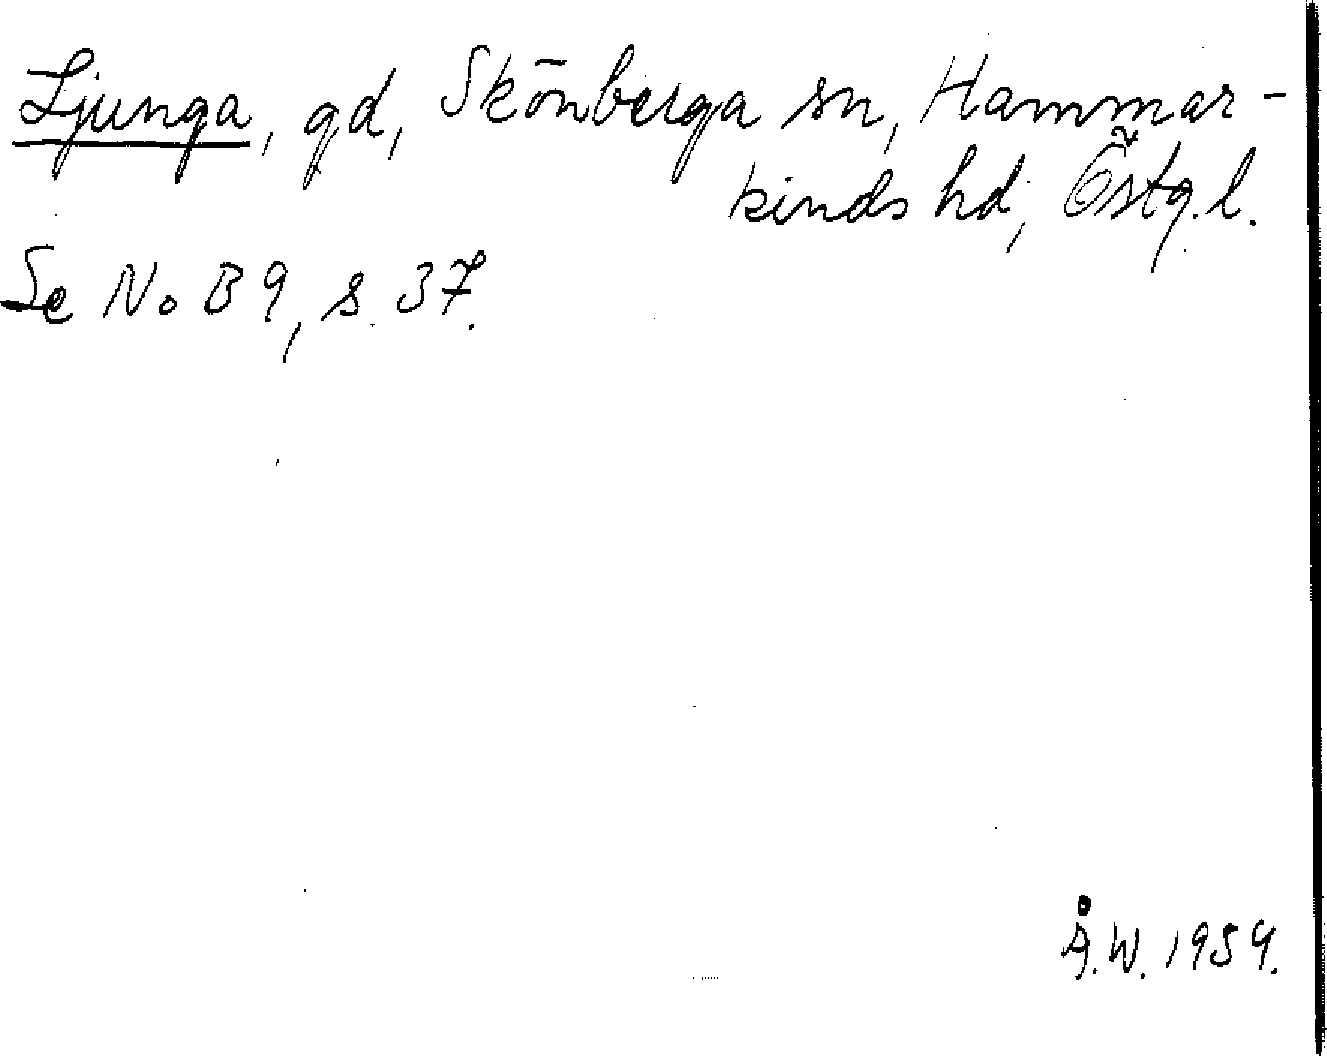 Ljunga, gd, Skönberga sn, Hammar-
kinds hd, Östg.l.
Se No B 9, s. 37.
Å.W. 1954.